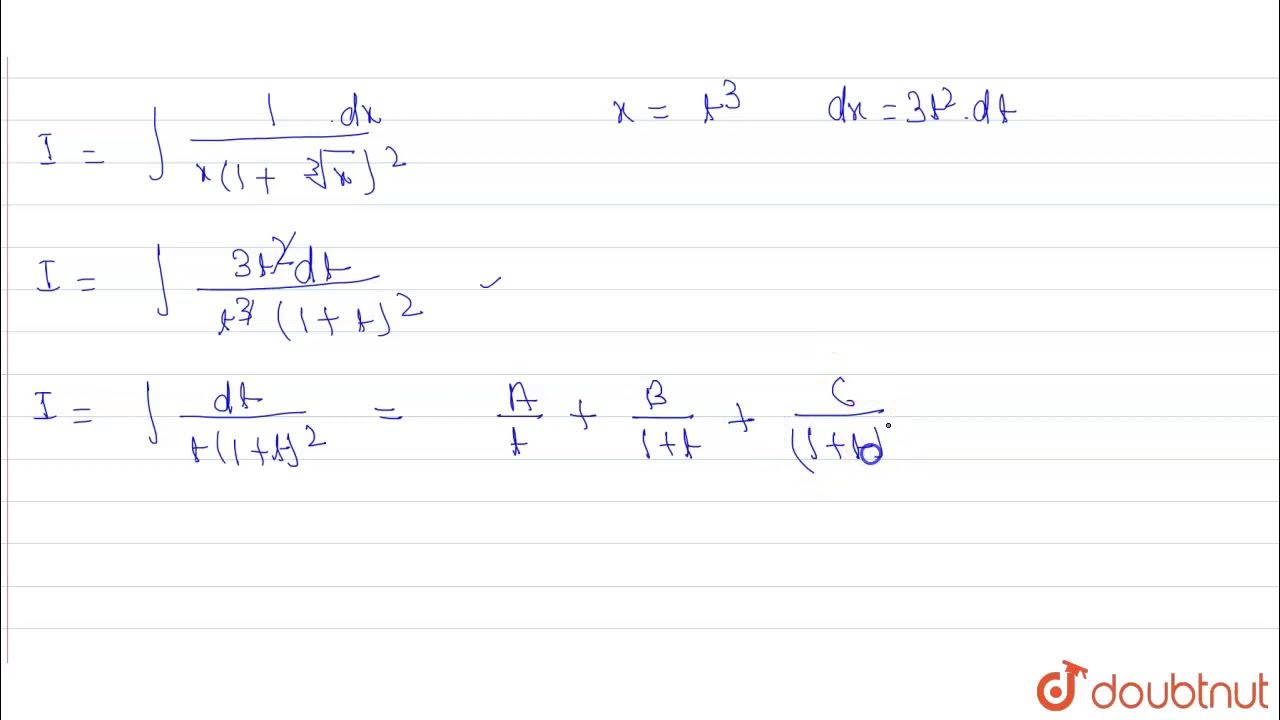 I = ∫ 1 .dx / x(1+ ∛x)² x = t³ dx = 3t².dt
I = ∫ 3t²dt / t³ (1+t)² ✓
I = ∫ dt / t(1+t)² = A/t + B/1+t + C/(1+t)
doubtnut